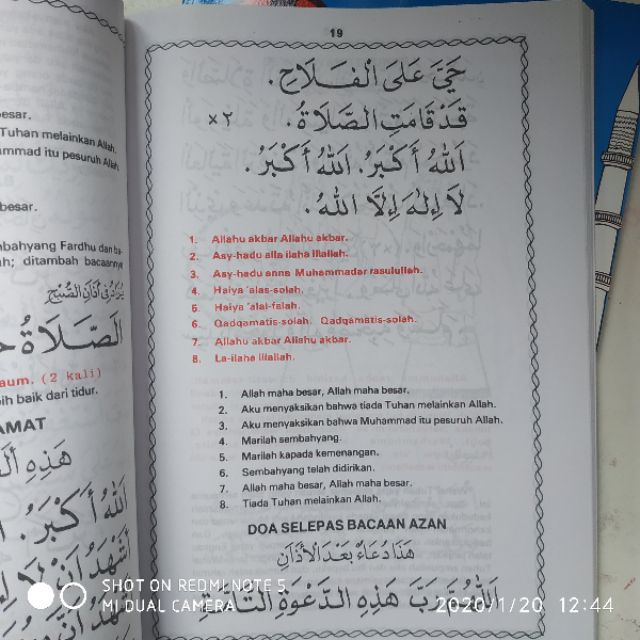 esar.
Tuhan melainkan Allah.
mmad itu pesuruh Allah
besar.
mbahyang Fardhu dan
h; ditambah bacaannya
aum. (2 kali)
ih baik dari tidur.
AMAT
هَذِهِ
اَللّٰهُ اَكْبَرُ.
اَشْهَدُ اَنْ لَا
19
حَيَّ عَلَى الْفَلَاحِ.
قَدْ قَامَتِ الصَّلَاةُ. ×٢
اَللّٰهُ اَكْبَرُ. اَللّٰهُ اَكْبَرُ.
لَا اِلٰهَ اِلَّا اللّٰهُ.
1. Allahu akbar Allahu akbar.
2. Asy-hadu alla ilaha illallah.
3. Asy-hadu anna Muhammadar rasulullah.
4. Haiya 'alas-solah.
5. Haiya 'alal-falah.
6. Qadqamatis-solah. Qadqamatis-solah.
7. Allahu akbar Allahu akbar.
8. La-ilaha illallah.
1. Allah maha besar, Allah maha besar.
2. Aku menyaksikan bahwa tiada Tuhan melainkan Allah.
3. Aku menyaksikan bahwa Muhammad itu pesuruh Allah.
4. Marilah sembahyang.
5. Marilah kapada kemenangan.
6. Sembahyang telah didirikan.
7. Allah maha besar, Allah maha besar.
8. Tiada Tuhan melainkan Allah.
DOA SELEPAS BACAAN AZAN
هَذَا دُعَاءٌ بَعْدَ الْاَذَانِ
اَللّٰهُمَّ رَبَّ هَذِهِ الدَّعْوَةِ التَّامَّةِ
SHOT ON REDMI NOTE 5
MI DUAL CAMERA
2020/1/20 12:44